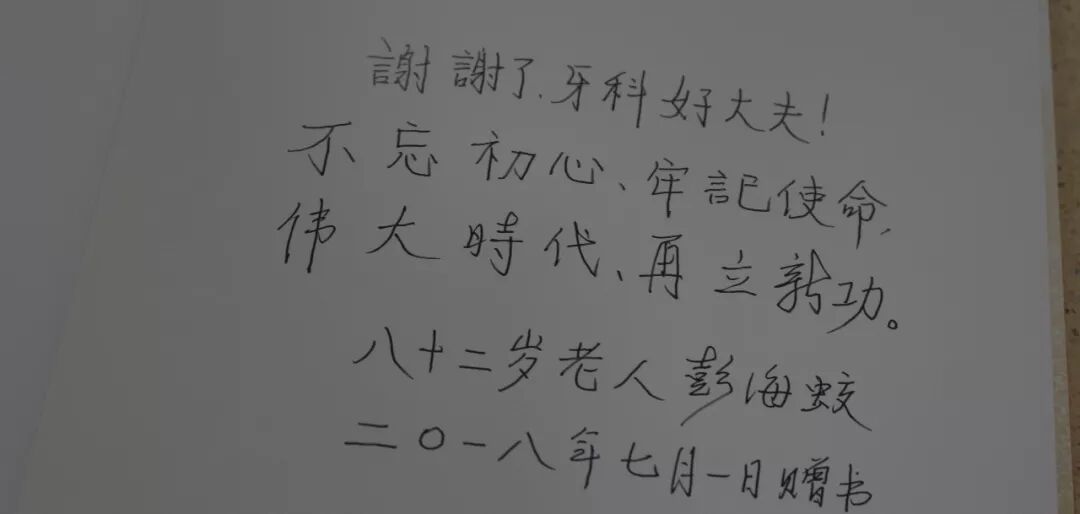 謝謝了.牙科好大夫!
不忘初心、牢記使命,
伟大時代、再立新功。
八十二岁老人彭海蛟
二〇一八年七月一日赠书